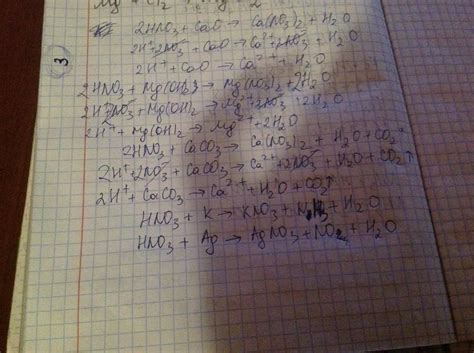 2HNO₃ + CaO → Ca(NO₃)₂ + H₂O
2H⁺ + 2NO₃⁻ + CaO → Ca²⁺ + 2NO₃⁻ + H₂O
3
2H⁺ + CaO → Ca²⁺ + H₂O
2HNO₃ + Mg(OH)₂ → Mg(NO₃)₂ + 2H₂O
2H⁺ + 2NO₃⁻ + Mg(OH)₂ → Mg²⁺ + 2NO₃⁻ + 2H₂O
2H⁺ + Mg(OH)₂ → Mg²⁺ + 2H₂O
2HNO₃ + CaCO₃ → Ca(NO₃)₂ + H₂O + CO₂↑
2H⁺ + 2NO₃⁻ + CaCO₃ → Ca²⁺ + 2NO₃⁻ + H₂O + CO₂↑
2H⁺ + CaCO₃ → Ca²⁺ + H₂O + CO₂↑
HNO₃ + K → KNO₃ + + H₂O
HNO₃ + Ag → AgNO₃ + NO₂ + H₂O